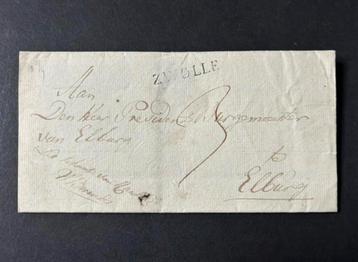 ZWOLLE
Aan
Den Heer President Burgemeester
van Elburg
3
te
Elburg